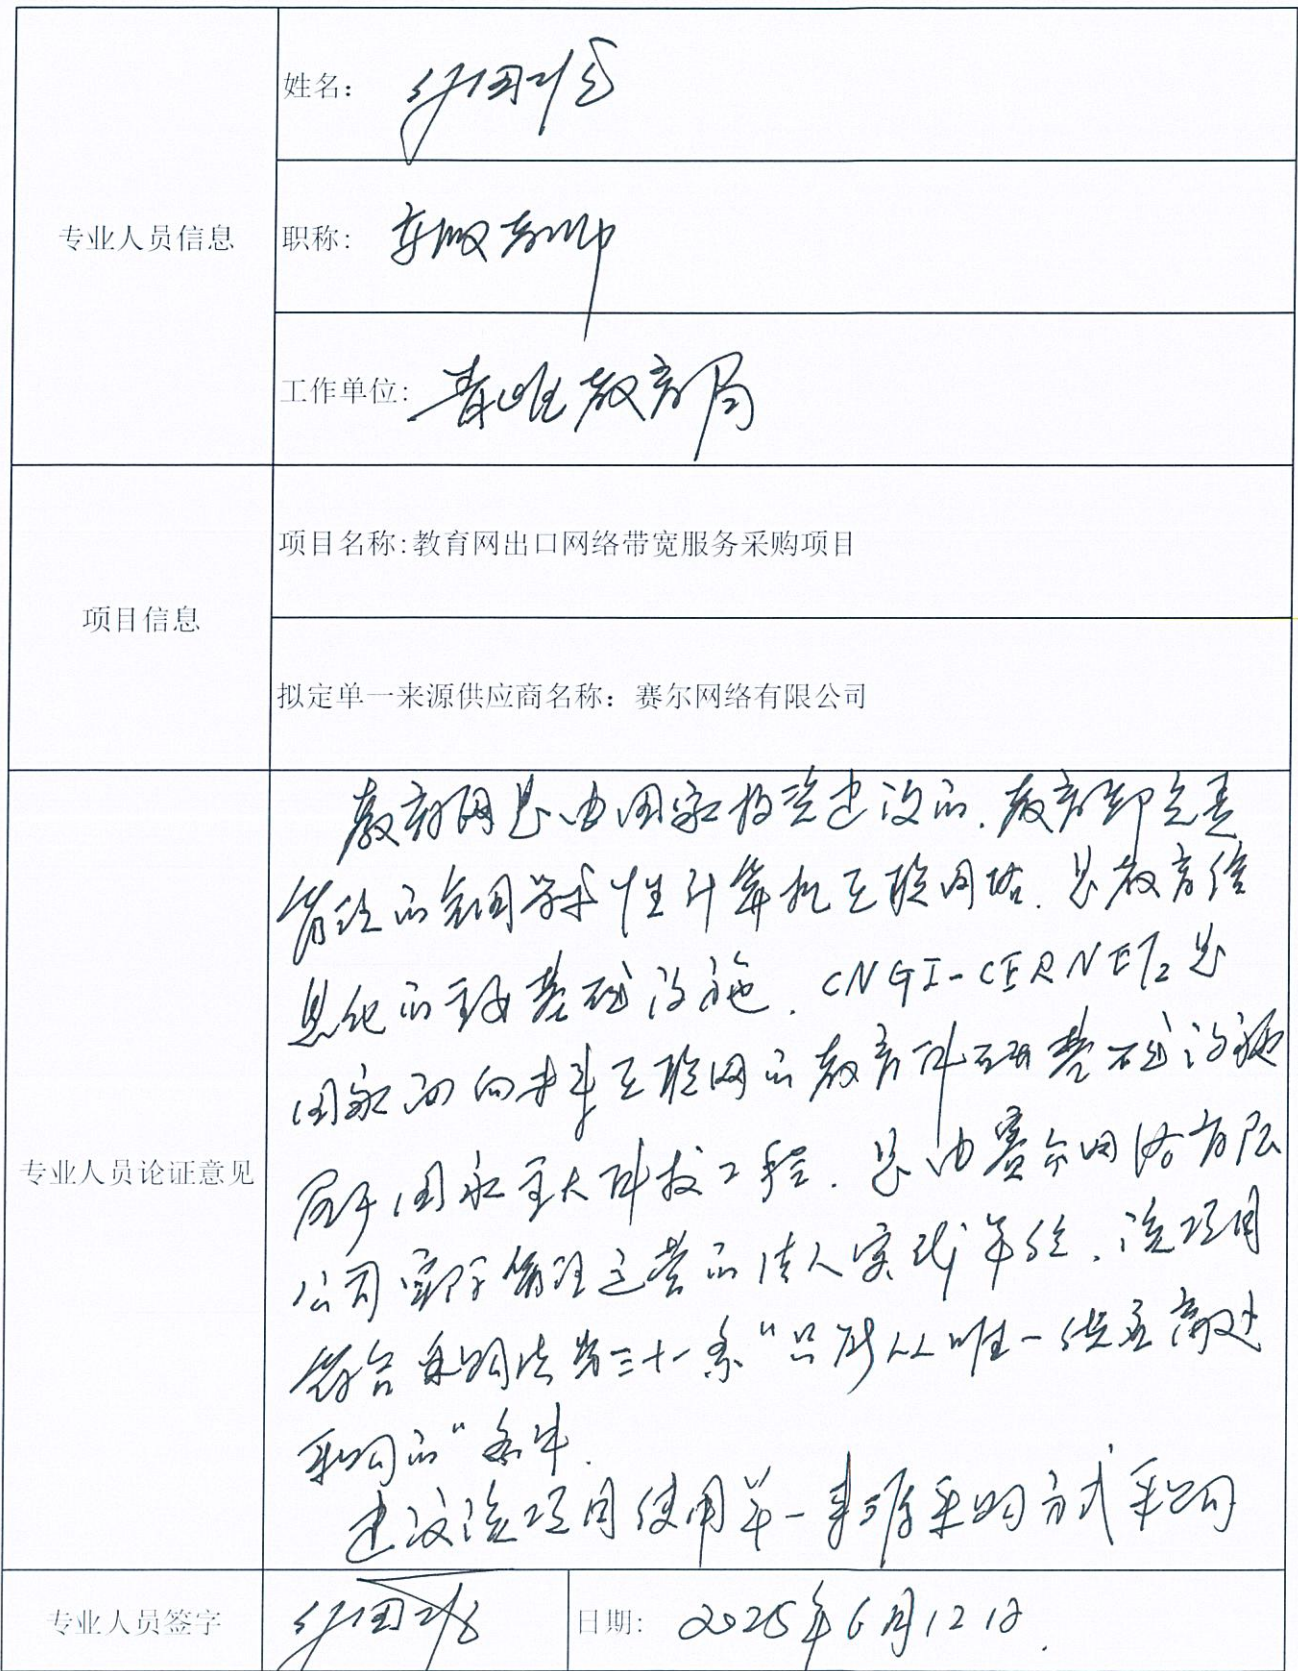 专业人员信息
姓名：
职称：
工作单位： 教育局
项目信息
项目名称:教育网出口网络带宽服务采购项目
拟定单一来源供应商名称：赛尔网络有限公司
专业人员论证意见
教育网是由国家投资建设的.教育部负责
管理的全国学术性计算机互联网络.是教育信
息化的重要基础设施.CNGI-CERNET2是
国家面向未来互联网的教育科研基础设施
属于国家重大科技工程.是由赛尔网络有限
公司实际管理运营的法人实践单位.该项目
符合采购法第三十一条“只能从唯一供应商处
采购的”条件.
建议该项目使用单一来源采购方式采购
专业人员签字
日期: 2025年6月12日.